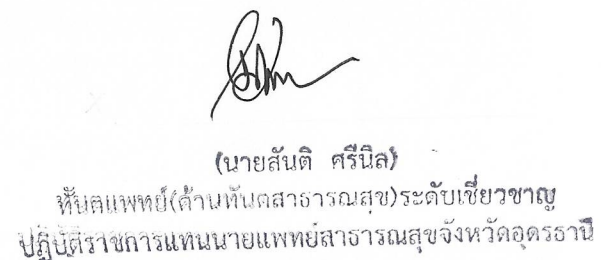 (นายสันติ ศรีนิล)
ทันตแพทย์(ด้านทันตสาธารณสุข)ระดับเชี่ยวชาญ
ปฏิบัติราชการแทนนายแพทย์สาธารณสุขจังหวัดอุดรธานี